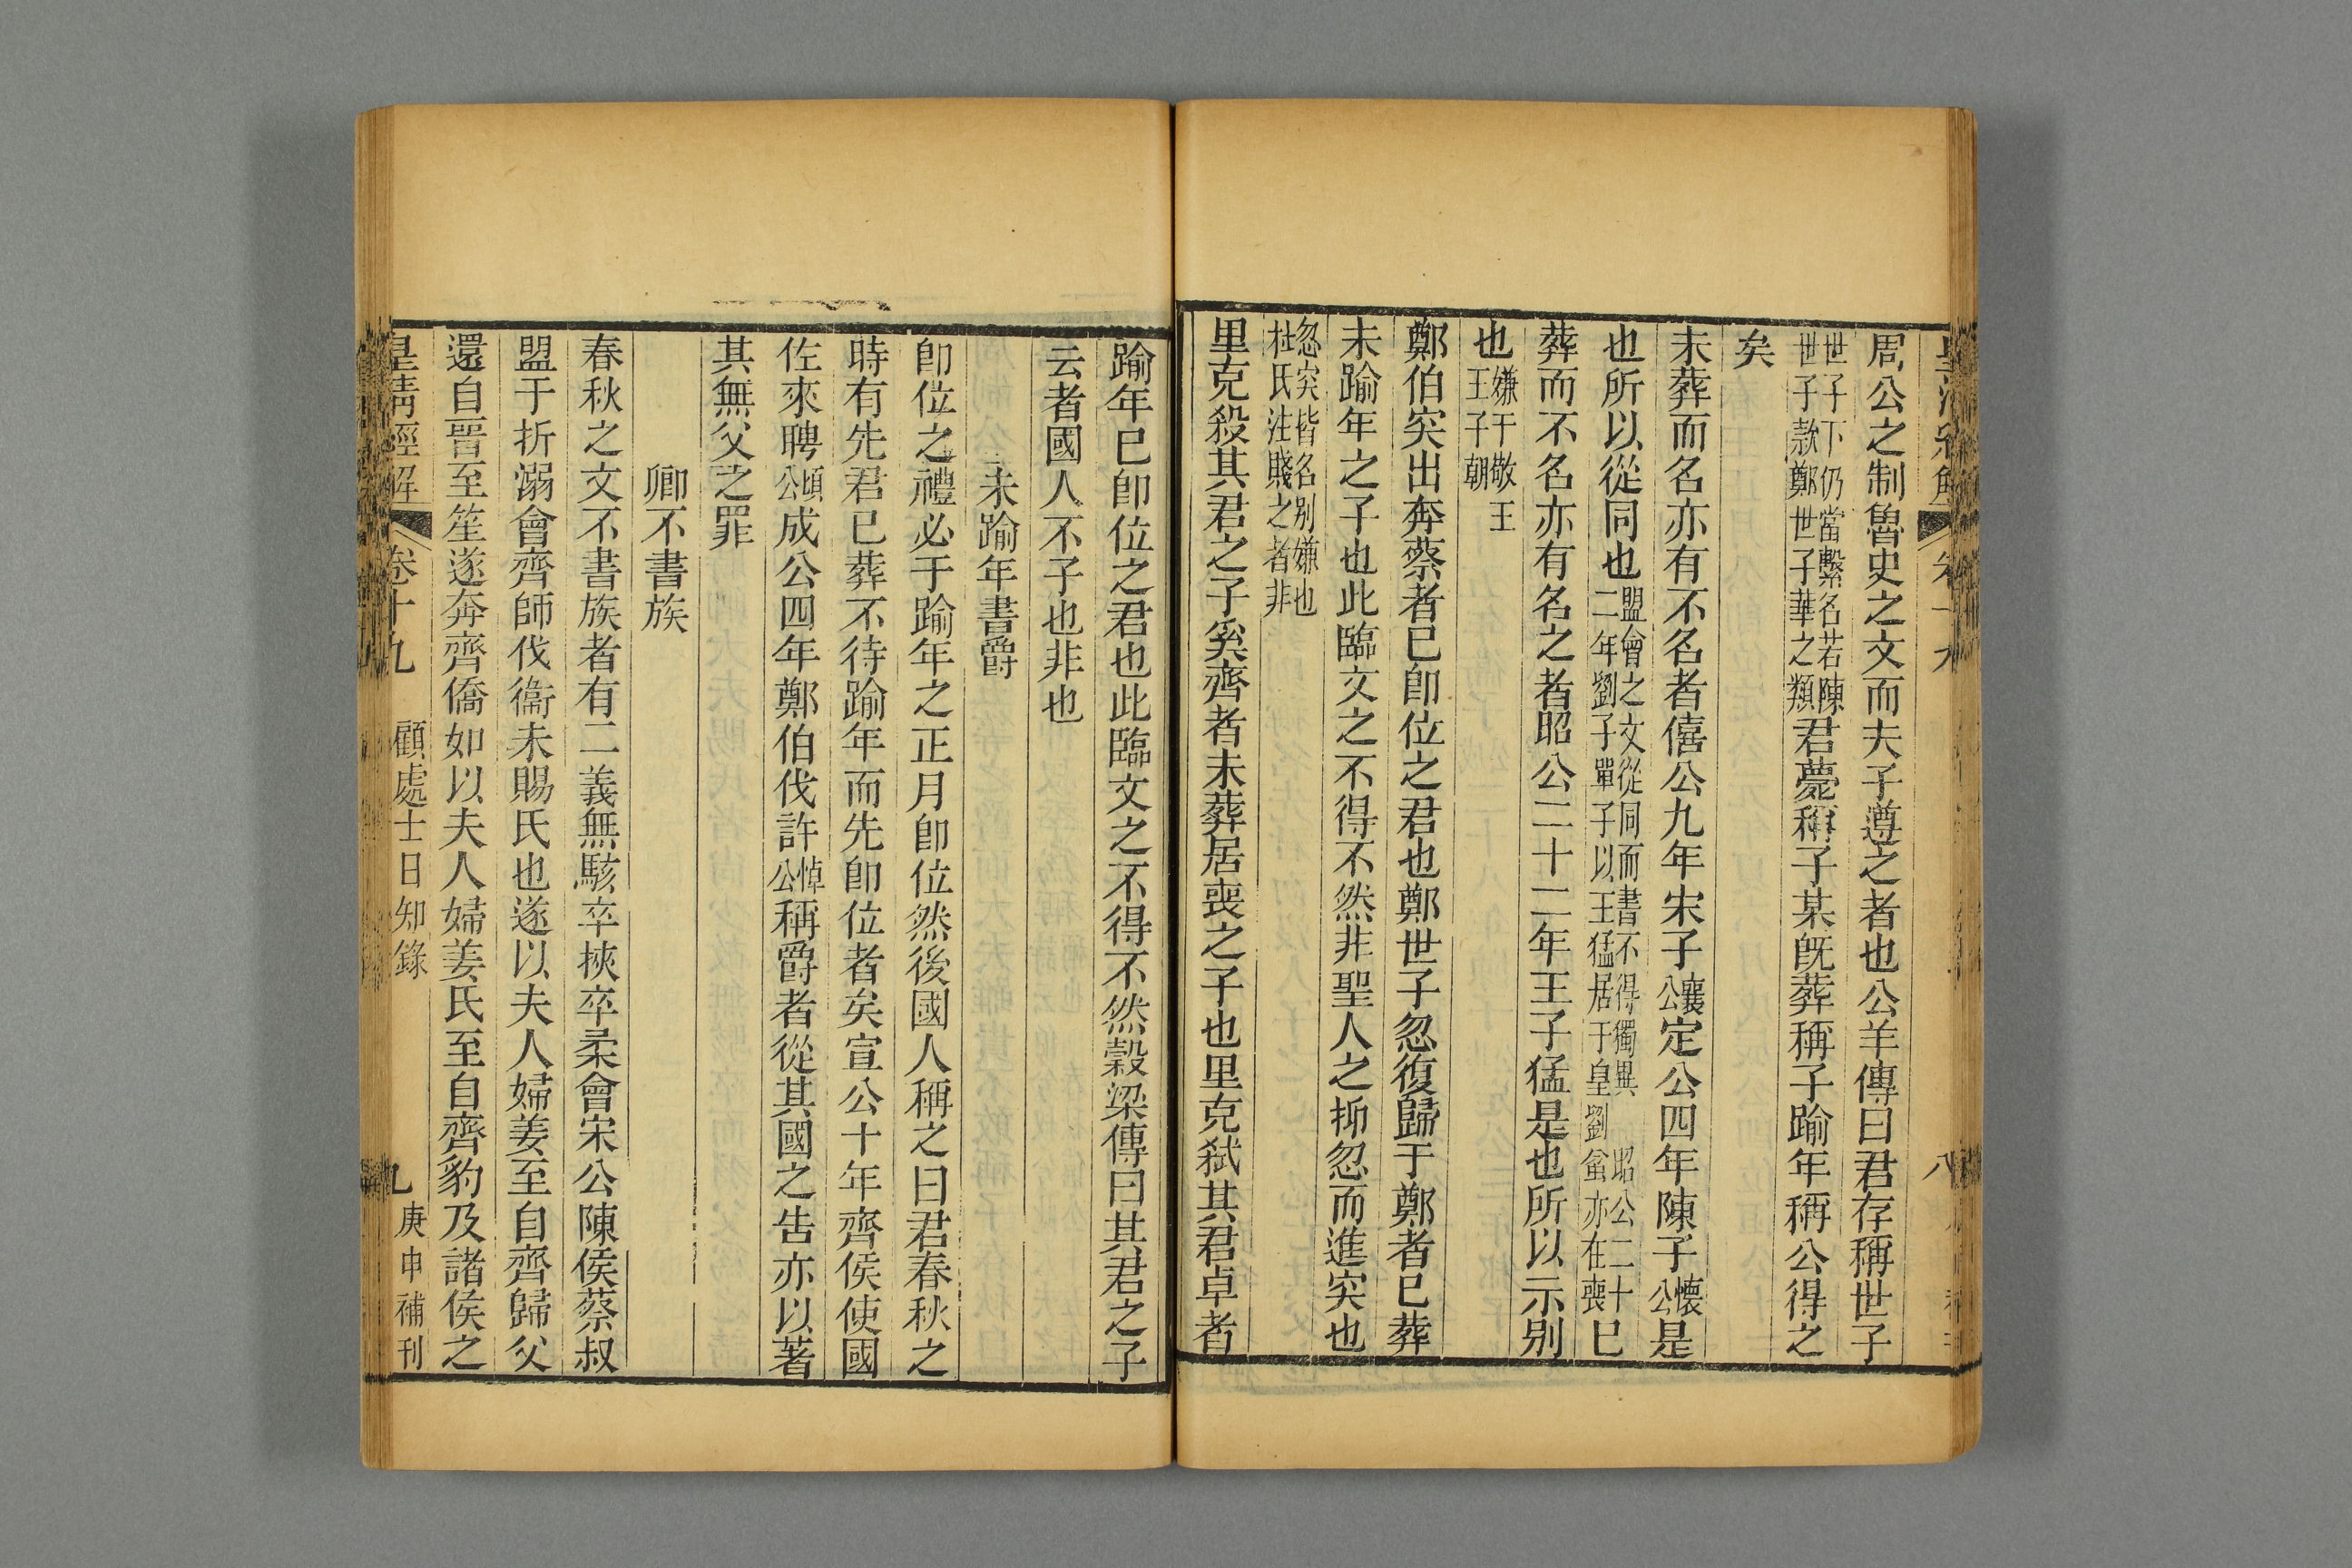 周公之制魯史之文而夫子遵之者也公羊傳曰君存稱世子
世子下仍當繫名若陳世子款鄭世子華之類君薨稱子某既葬稱子踰年稱公得之
矣
未葬而名亦有不名者僖公九年宋子襄公定公四年陳子懷公是
也所以從同也盟會之文從同而書不得獨異 昭公二十二年劉子單子以王猛居于皇劉蚠亦在喪已
葬而不名亦有名之者昭公二十二年王子猛是也所以示別
也嫌于敬王王子朝
鄭伯突出奔蔡者已卽位之君也鄭世子忽復歸于鄭者已葬
未踰年之子也此臨文之不得不然非聖人之抑忽而進突也
忽突皆名別嫌也杜氏注賤之者非
里克殺其君之子奚齊者未葬居喪之子也里克弑其君卓者
踰年已卽位之君也此臨文之不得不然穀梁傳曰其君之子
云者國人不子也非也
未踰年書爵
卽位之禮必于踰年之正月卽位然後國人稱之曰君春秋之
時有先君已葬不待踰年而先卽位者矣宣公十年齊侯使國
佐來聘頃公成公四年鄭伯伐許悼公稱爵者從其國之告亦以著
其無父之罪
卿不書族
春秋之文不書族者有二義無駭卒挾卒柔會宋公陳侯蔡叔
盟于折溺會齊師伐衞未賜氏也遂以夫人婦姜至自齊歸父
還自晉至笙遂奔齊僑如以夫人婦姜氏至自齊豹及諸侯之
皇清經解 卷十九 顧處士日知錄 九 庚申補刊